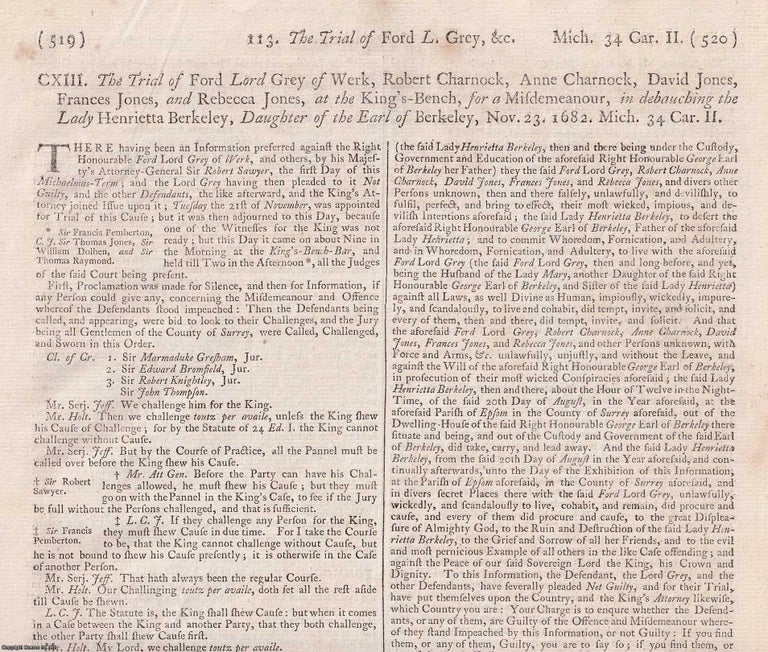 (519) 113. The Trial of Ford L. Grey, &c. Mich. 34 Car. II. (520)
CXIII. The Trial of Ford Lord Grey of Werk, Robert Charnock, Anne Charnock, David Jones,
Frances Jones, and Rebecca Jones, at the King's-Bench, for a Miſdemeanour, in debauching the
Lady Henrietta Berkeley, Daughter of the Earl of Berkeley, Nov. 23. 1682. Mich. 34 Car. II.
THERE having been an Information preferred againſt the Right
Honourable Ford Lord Grey of Werk, and others, by his Majeſ-
ty's Attorney-General Sir Robert Sawyer, the firſt Day of this
Michaelmas-Term; and the Lord Grey having then pleaded to it Not
Guilty, and the other Defendants, the like afterward, and the King's At-
torney joined Iſſue upon it; Tueſday the 21ſt of November, was appointed
for Trial of this Cauſe; but it was then adjourned to this Day, becauſe
* Sir Francis Pemberton,
C. J. Sir Thomas Jones, Sir
William Dolben, and Sir
Thomas Raymond.
one of the Witneſſes for the King was not
ready; but this Day it came on about Nine in
the Morning at the King's-Bench-Bar, and
held till Two in the Afternoon*, all the Judges
of the ſaid Court being preſent.
Firſt, Proclamation was made for Silence, and then for Information, if
any Perſon could give any, concerning the Miſdemeanour and Offence
whereof the Defendants ſtood impeached: Then the Defendants being
called, and appearing, were bid to look to their Challenges, and the Jury
being all Gentlemen of the County of Surrey, were Called, Challenged,
and Sworn in this Order.
Cl. of Cr. 1. Sir Marmaduke Greſham, Jur.
2. Sir Edward Bromfield, Jur.
3. Sir Robert Knightley, Jur.
Sir John Thompſon.
Mr. Serj. Jeff. We challenge him for the King.
Mr. Holt. Then we challenge toutz per availe, unleſs the King ſhew
his Cauſe of Challenge; for by the Statute of 24 Ed. I. the King cannot
challenge without Cauſe.
Mr. Serj. Jeff. But by the Courſe of Practice, all the Pannel muſt be
called over before the King ſhew his Cauſe.
† Sir Robert
Sawyer.
† Mr. Att Gen. Before the Party can have his Chal-
lenges allowed, he muſt ſhew his Cauſe; but they muſt
go on with the Pannel in the King's Caſe, to ſee if the Jury
be full without the Perſons challenged, and that is ſufficient.
‡ Sir Francis
Pemberton.
‡ L. C. J. If they challenge any Perſon for the King,
they muſt ſhew Cauſe in due time. For I take the Courſe
to be, that the King cannot challenge without Cauſe, but
he is not bound to ſhew Cauſe preſently; it is otherwiſe in the Caſe
of another Perſon.
Mr. Serj. Jeff. That hath always been the regular Courſe.
Mr. Holt. Our Challinging toutz per availe, doth ſet all the reſt aſide
till Cauſe be ſhewn.
L. C. J. The Statute is, the King ſhall ſhew Cauſe: but when it comes
in a Caſe between the King and another Party, that they both challenge,
the other Party ſhall ſhew Cauſe firſt.
Mr. Holt. My Lord, we challenge toutz per availe.
(the ſaid Lady Henrietta Berkeley, then and there being under the Cuſtody,
Government and Education of the aforeſaid Right Honourable George Earl
of Berkeley her Father) they the ſaid Ford Lord Grey, Robert Charnock, Anne
Charnock, David Jones, Frances Jones, and Rebecca Jones, and divers other
Perſons unknown, then and there falſely, unlawfully, and deviliſhly, to
fulfil, perfect, and bring to effect, their moſt wicked, impious, and de-
viliſh Intentions aforeſaid; the ſaid Lady Henrietta Berkeley, to deſert the
aforeſaid Right Honourable George Earl of Berkeley, Father of the aforeſaid
Lady Hehrietta; and to commit Whoredom, Fornication, and Adultery,
and in Whoredom, Fornication, and Adultery, to live with the aforeſaid
Ford Lord Grey (the ſaid Ford Lord Grey, then and long before, and yet,
being the Husband of the Lady Mary, another Daughter of the ſaid Right
Honourable George Earl of Berkeley, and Siſter of the ſaid Lady Henrietta)
againſt all Laws, as well Divine as Human, impiouſly, wickedly, impure-
ly, and ſcandalouſly, to live and cohabit, did tempt, invite, and ſolicit, and
every of them, then and there, did tempt, invite, and ſolicit. And that
the aforeſaid Ford Lord Grey, Robert Charnock, Anne Charnock, David
Jones, Frances Jones, and Rebecca Jones, and other Perſons unknown, with
Force and Arms, &c. unlawfully, unjuſtly, and without the Leave, and
againſt the Will of the aforeſaid Right Honourable George Earl of Berkeley,
in proſecution of their moſt wicked Conſpiracies aforeſaid; the ſaid Lady
Henrietta Berkeley, then and there, about the Hour of Twelve in the Night-
Time, of the ſaid 20th Day of Auguſt, in the Year aforeſaid, at the
aforeſaid Pariſh of Epſom in the County of Surrey aforeſaid, out of the
Dwelling-Houſe of the ſaid Right Honourable George Earl of Berkeley there
ſituate and being, and out of the Cuſtody and Government of the ſaid Earl
of Berkeley, did take, carry, and lead away. And the ſaid Lady Henrietta
Berkeley, from the ſaid 20th Day of Auguſt in the Year aforeſaid, and con-
tinually afterwards, unto the Day of the Exhibition of this Information,
at the Pariſh of Epſom aforeſaid, in the County of Surrey aforeſaid, and
in divers ſecret Places there with the ſaid Ford Lord Grey, unlawfully,
wickedly, and ſcandalouſly to live, cohabit, and remain, did procure and
cauſe, and every of them did procure and cauſe, to the great Diſplea-
ſure of Almighty God, to the Ruin and Deſtruction of the ſaid Lady Hen-
rietta Berkeley, to the Grief and Sorrow of all her Friends, and to the evil
and moſt pernicious Example of all others in the like Caſe offending; and
againſt the Peace of our ſaid Sovereign Lord the King, his Crown and
Dignity. To this Information, the Defendant, the Lord Grey, and the
other Defendants, have ſeverally pleaded Not Guilty, and for their Trial,
have put themſelves upon the Country, and the King's Attorney likewiſe,
which Country you are: Your Charge is to enquire whether the Defend-
ants, or any of them, are Guilty of the Offence and Miſdemeanour where-
of they ſtand Impeached by this Information, or not Guilty: If you find
them, or any of them, Guilty, you are to ſay ſo; if you find them, or